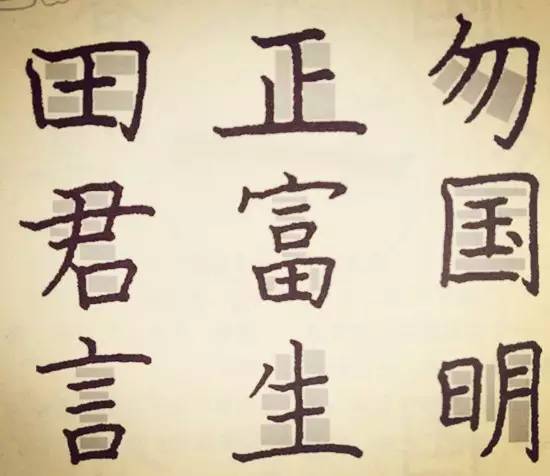 田正勿
君富国
言生明